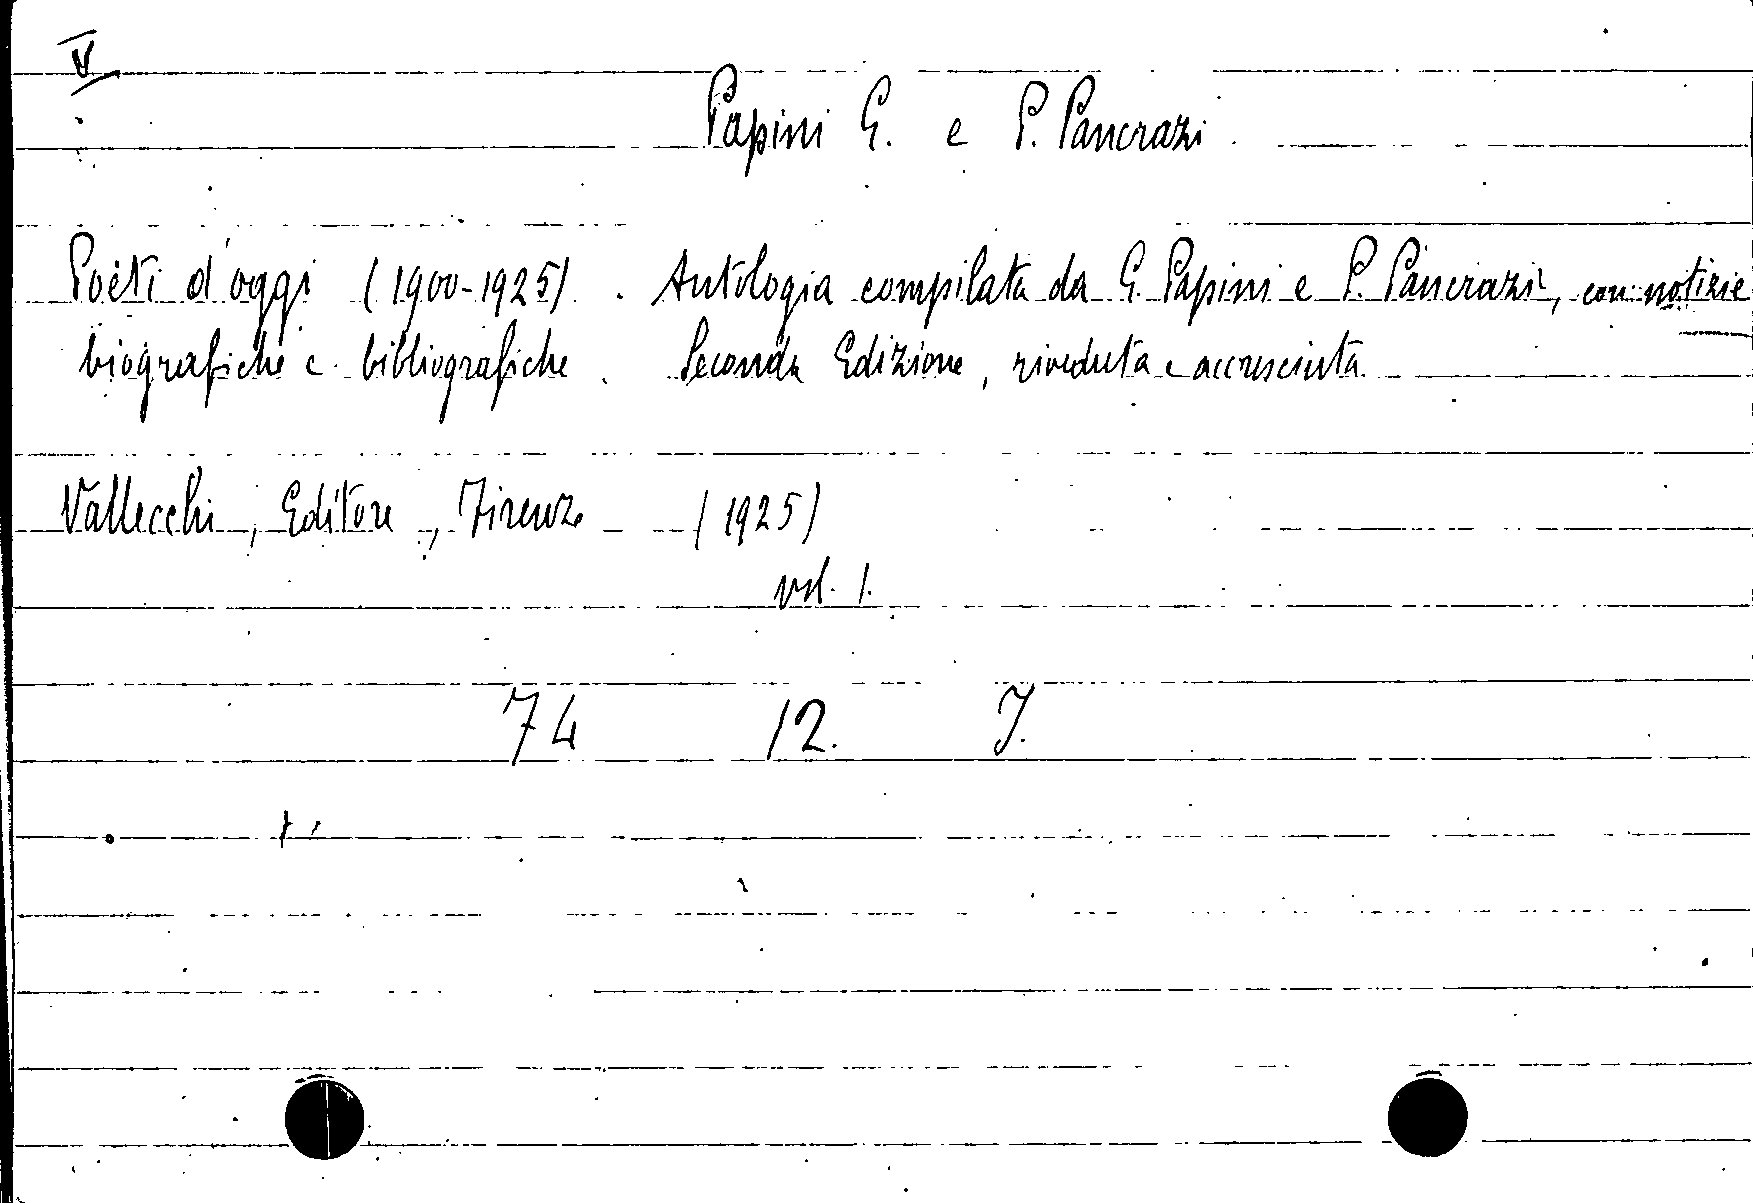 V
Papini G. e P. Pancrazi
Poeti d'oggi (1900-1925). Antologia compilata da G. Papini e P. Pancrazi, con notizie
biografiche e bibliografiche. Seconda Edizione, riveduta e accresciuta.
Vallecchi, Editore, Firenze (1925)
vol. 1.
74 12. J.